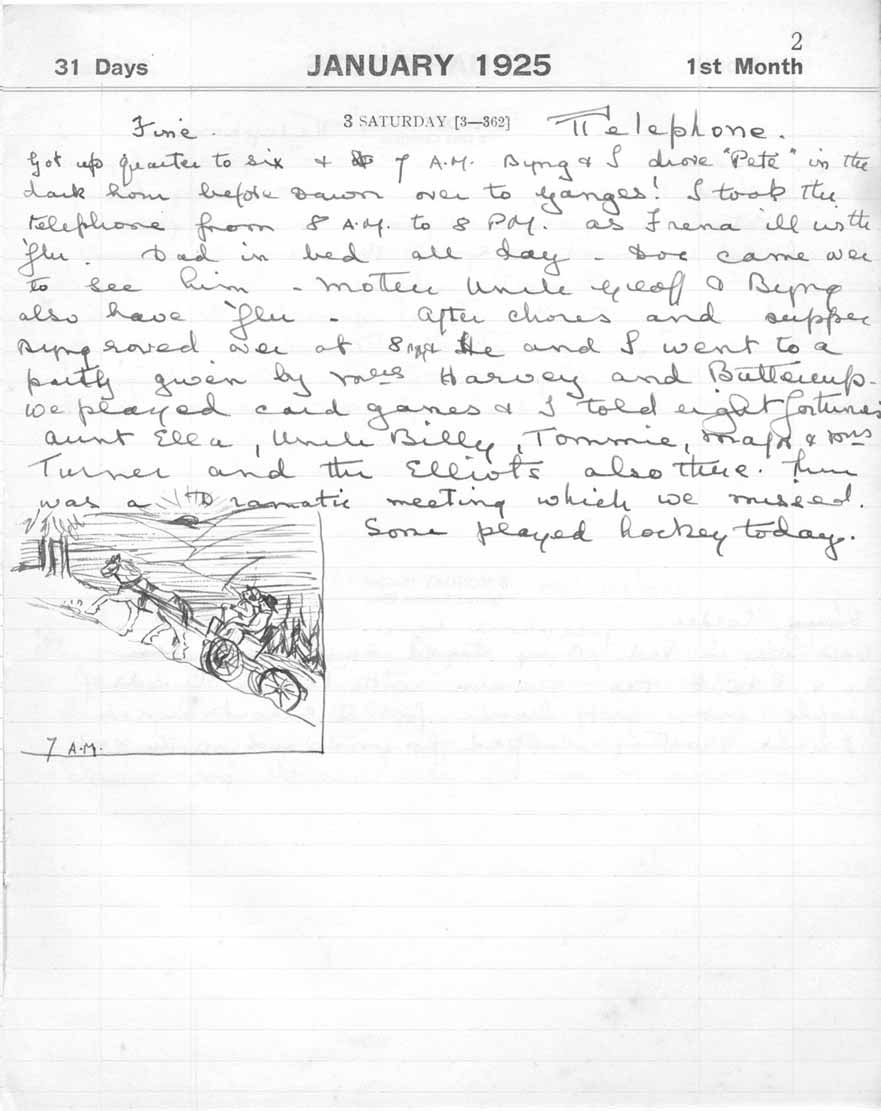 2
31 Days JANUARY 1925 1st Month
Fine. 3 SATURDAY [3—362] Telephone.
Got up quarter to six & 7 A.M. Byng & I drove "Pete" in the
dark hour before Dawn over to Ganges! I took the
telephone from 8 A.M. to 8 P.M. as Frena ill with
'flu. Dad in bed all day - Doc came over
to see him - Mother Uncle Geoff & Byng
also have 'flu - After chores and supper
Byng roved over at 8 He and I went to a
party given by Mrs Harvey and Buttercup.
We played card games & I told eight fortunes
Aunt Ella, Uncle Billy, Tommie, Major & Mrs
Turner and the Elliots also there. There
was a Dramatic meeting which we missed.
Some played hockey today.
7 A.M.